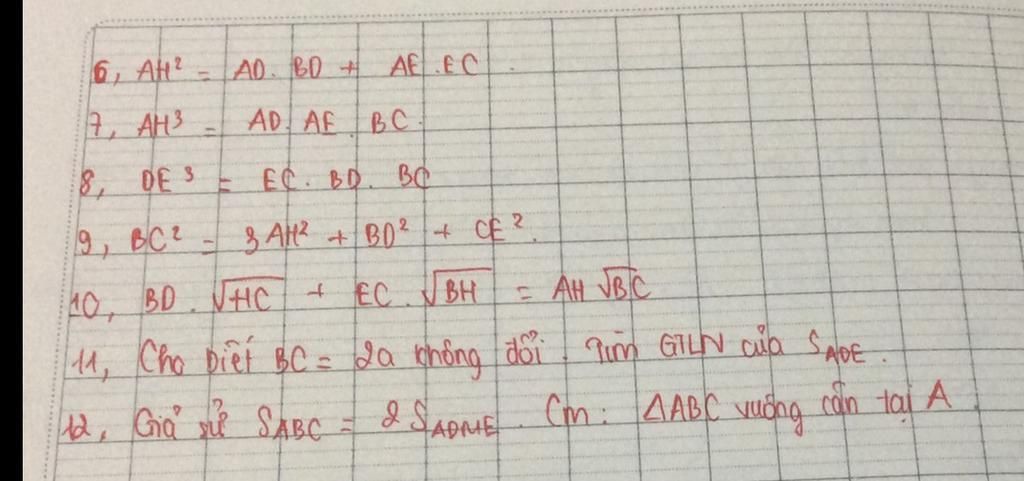 6, AH² = AD. BD + AE.EC.
7, AH³ = AD. AE. BC.
8, DE³ = EC. BD. BC
9, BC² = 3AH² + BD² + CE².
10, BD. √HC + EC. √BH = AH √BC
11, Cho biết BC = 2a không đổi. Tìm GTLN của S_ADE.
12, Giả sử S_ABC = 2S_ADHE. Cm: ΔABC vuông cân tại A